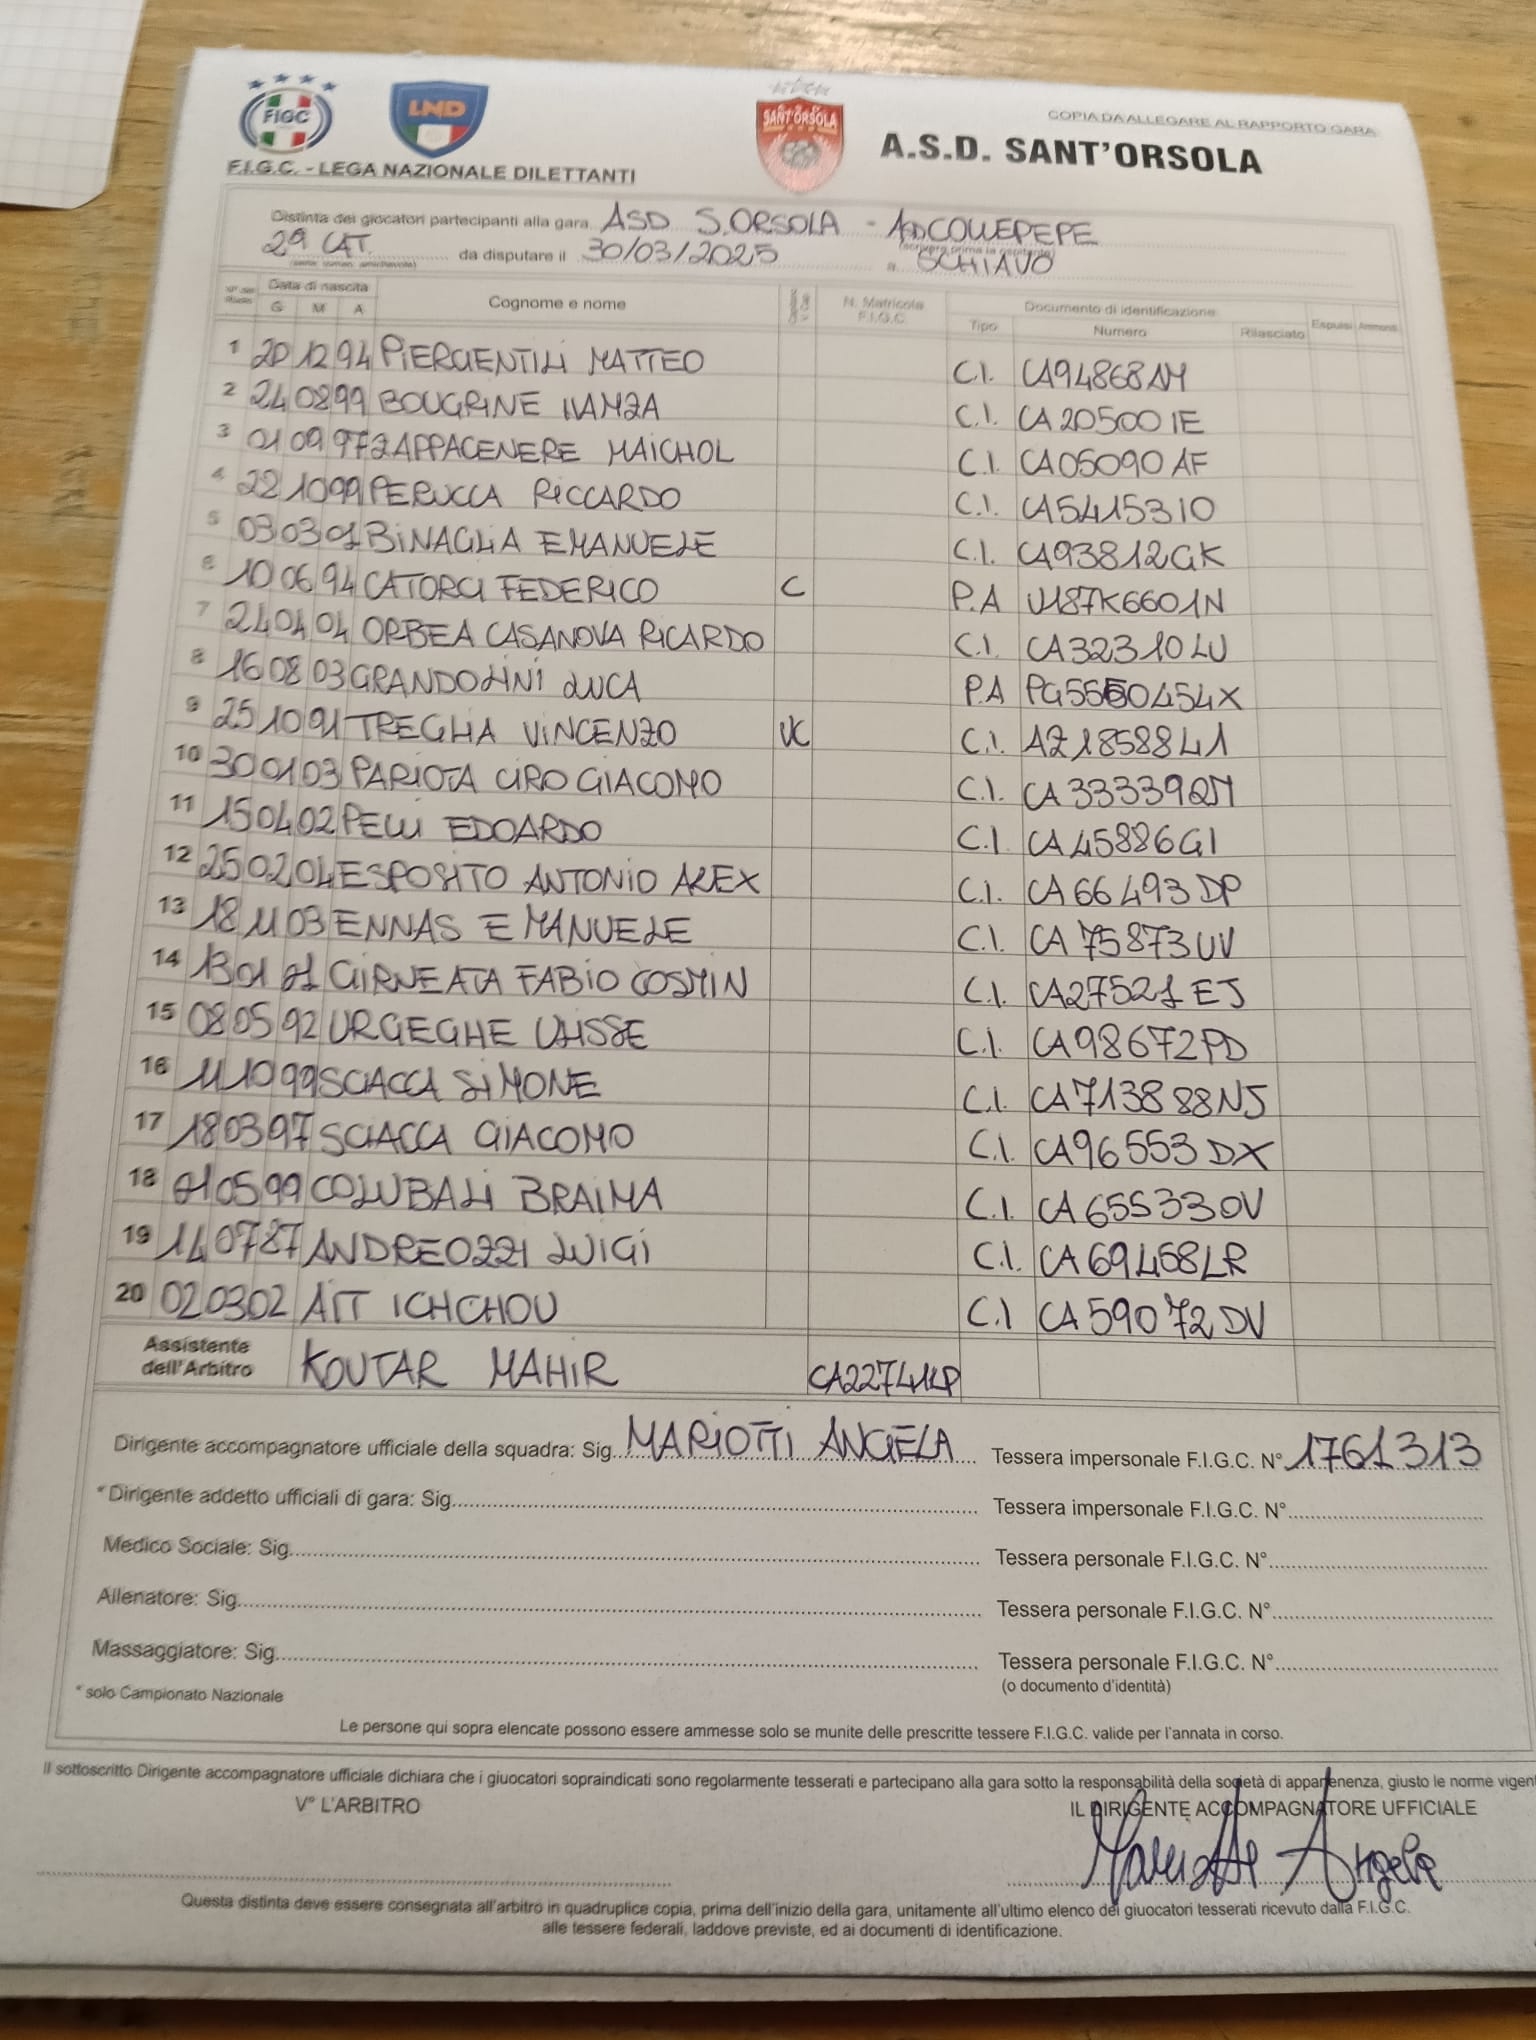 FIGC
LND
SANT'ORSOLA
COPIA DA ALLEGARE AL RAPPORTO GARA
A.S.D. SANT'ORSOLA
F.I.G.C. - LEGA NAZIONALE DILETTANTI
Distinta dei giocatori partecipanti alla gara ASD S.ORSOLA - ASDCOLLEPEPE
2ª CAT. da disputare il 30/03/2025 a SCHIAVO
Data di nascita Cognome e nome N. Matricola F.I.G.C. Documento di identificazione Espulsi Ammoniti
G M A Tipo Numero Rilasciato
1 20 12 94 PIERGENTILI MATTEO C.I. CA94868AM
2 24 08 99 BOUGRINE HAMZA C.I. CA20500IE
3 01 09 97 ZAPPACENERE MAICHOL C.I. CA05090AF
4 22 10 99 PERUCCA RICCARDO C.I. CA54153IO
5 03 03 01 BINAGLIA EMANUELE C.I. CA93812GK
6 10 06 94 CATORCI FEDERICO C P.A U187K6601N
7 24 04 04 ORBEA CASANOVA RICARDO C.I. CA32310LU
8 16 08 03 GRANDOLINI LUCA P.A PG5550454X
9 25 10 91 TREGLIA VINCENZO VC C.I. AZ1858841
10 30 01 03 PARIOTA CIRO GIACOMO C.I. CA33339QM
11 15 04 02 PELLI EDOARDO C.I. CA45886GI
12 25 02 04 ESPOSITO ANTONIO ALEX C.I. CA66493DP
13 18 11 03 ENNAS EMANUELE C.I. CA75873UV
14 13 01 01 GIRNEATA FABIO COSMIN C.I. CA27521EJ
15 08 05 92 URGEGHE ULISSE C.I. CA98672PD
16 11 10 99 SCIACCA SIMONE C.I. CA713888NJ
17 18 03 97 SCIACCA GIACOMO C.I. CA96553DX
18 01 05 99 COLUBALI BRAIMA C.I. CA65533OV
19 14 07 87 ANDREOZZI LUIGI C.I. CA69458LR
20 02 03 02 AIT ICHCHOU C.I CA59072DV
Assistente dell'Arbitro KOUTAR MAHIR CA22741LP
Dirigente accompagnatore ufficiale della squadra: Sig. MARIOTTI ANGELA Tessera impersonale F.I.G.C. N° 1761313
* Dirigente addetto ufficiali di gara: Sig. Tessera impersonale F.I.G.C. N°
Medico Sociale: Sig. Tessera personale F.I.G.C. N°
Allenatore: Sig. Tessera personale F.I.G.C. N°
Massaggiatore: Sig. Tessera personale F.I.G.C. N°
* solo Campionato Nazionale (o documento d'identità)
Le persone qui sopra elencate possono essere ammesse solo se munite delle prescritte tessere F.I.G.C. valide per l'annata in corso.
Il sottoscritto Dirigente accompagnatore ufficiale dichiara che i giuocatori sopraindicati sono regolarmente tesserati e partecipano alla gara sotto la responsabilità della società di appartenenza, giusto le norme vigen
V° L'ARBITRO IL DIRIGENTE ACCOMPAGNATORE UFFICIALE
Mariotti Angela
Questa distinta deve essere consegnata all'arbitro in quadruplice copia, prima dell'inizio della gara, unitamente all'ultimo elenco dei giuocatori tesserati ricevuto dalla F.I.G.C.
alle tessere federali, laddove previste, ed ai documenti di identificazione.